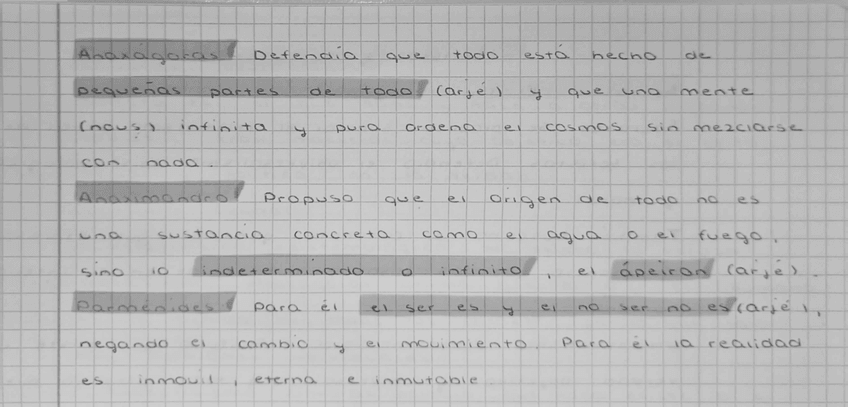 Anaxágoras Defendía que todo está hecho de
pequeñas partes de todo (arjé) y que una mente
(nous) infinita y pura ordena el cosmos sin mezclarse
con nada.
Anaximandro Propuso que el origen de todo no es
una sustancia concreta como el agua o el fuego,
sino lo indeterminado o infinito, el ápeiron (arjé).
Parménides Para él el ser es y el no ser no es (arjé),
negando el cambio y el movimiento. Para él la realidad
es inmovil, eterna e inmutable